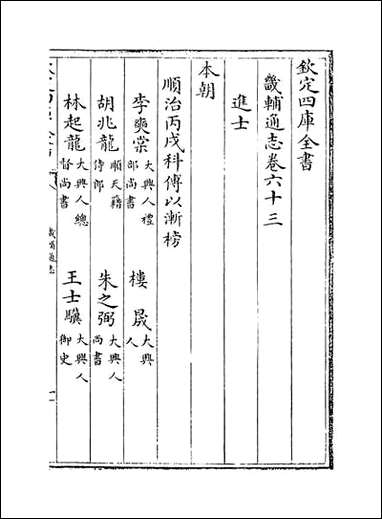 欽定四庫全書
畿輔通志卷六十三
進士
本朝
順治丙戌科傅以漸榜
李奭棠 大興人禮部尚書
樓晟 大興人
胡兆龍 順天籍侍郎
朱之弼 大興人尚書
林起龍 大興人總督尚書
王士驥 大興人御史
畿輔通志